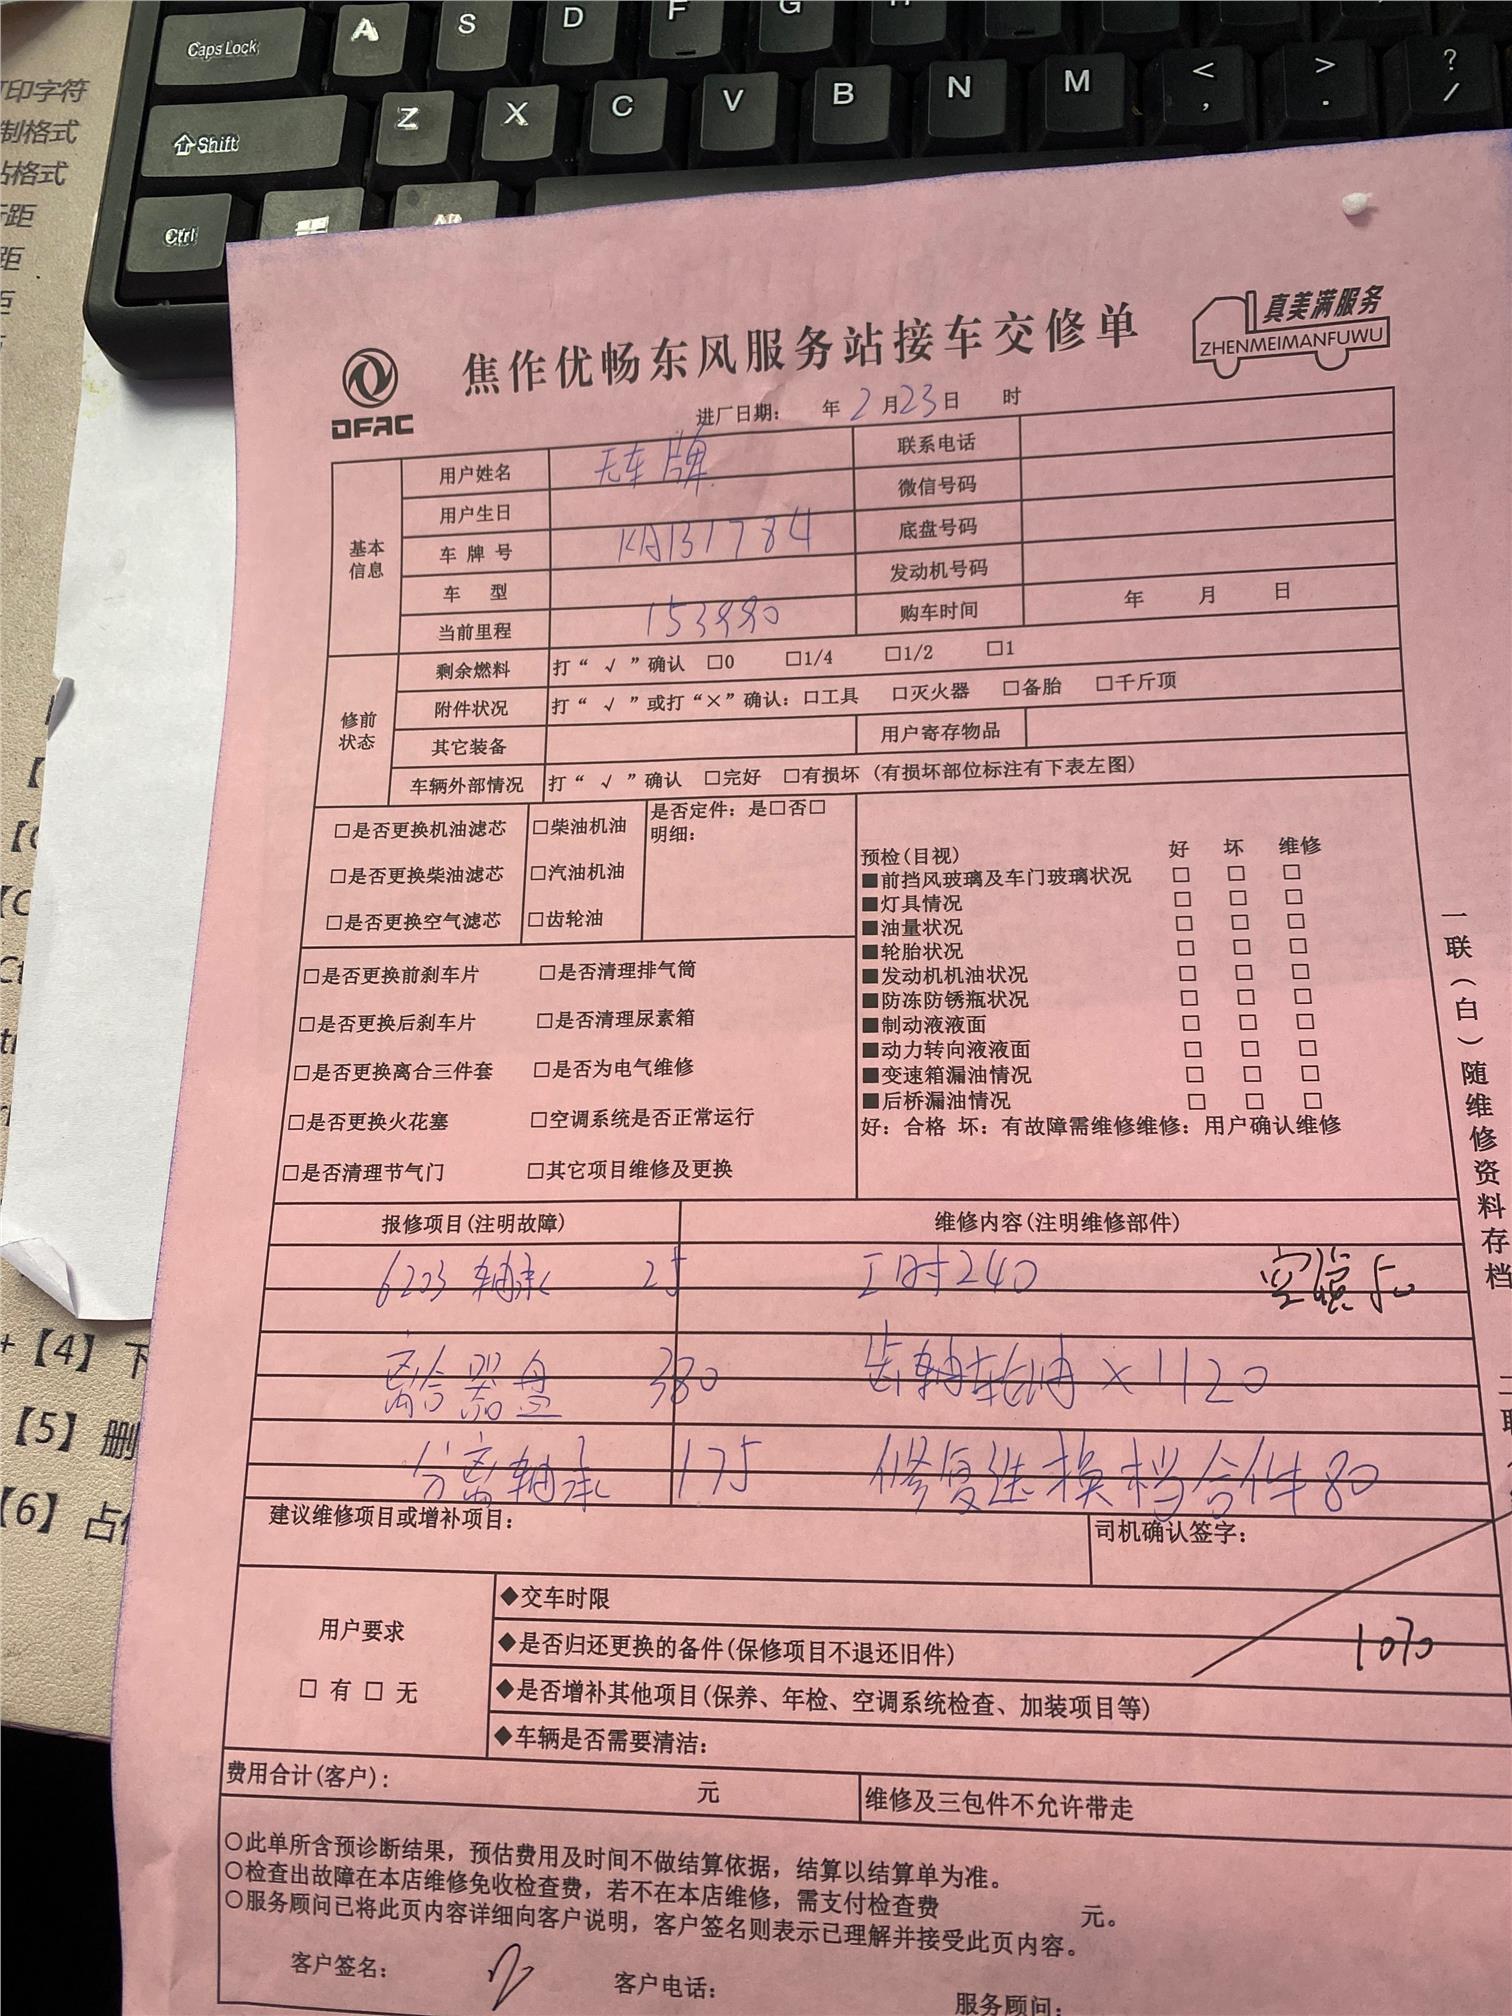 Caps Lock A S D F G
Shift Z X C V B N M < , > . ? /
Ctrl
印字符
制格式
格式
距
距
+【4】下
【5】删
【6】占
真美满服务
ZHENMEIMANFUWU
DFAC
焦作优畅东风服务站接车交修单
进厂日期: 年2月23日 时
基本信息
用户姓名 无车牌 联系电话
用户生日 微信号码
车牌号 KA131784 底盘号码
车 型 发动机号码
当前里程 153880 购车时间 年 月 日
修前状态
剩余燃料 打“√”确认 □0 □1/4 □1/2 □1
附件状况 打“√”或打“×”确认：□工具 □灭火器 □备胎 □千斤顶
其它装备 用户寄存物品
车辆外部情况 打“√”确认 □完好 □有损坏（有损坏部位标注有下表左图）
□是否更换机油滤芯 □柴油机油 是否定件：是□否□
明细：
□是否更换柴油滤芯 □汽油机油
□是否更换空气滤芯 □齿轮油
□是否更换前刹车片 □是否清理排气筒
□是否更换后刹车片 □是否清理尿素箱
□是否更换离合三件套 □是否为电气维修
□是否更换火花塞 □空调系统是否正常运行
□是否清理节气门 □其它项目维修及更换
预检(目视) 好 坏 维修
■前挡风玻璃及车门玻璃状况 □ □ □
■灯具情况 □ □ □
■油量状况 □ □ □
■轮胎状况 □ □ □
■发动机机油状况 □ □ □
■防冻防锈瓶状况 □ □ □
■制动液液面 □ □ □
■动力转向液液面 □ □ □
■变速箱漏油情况 □ □ □
■后桥漏油情况 □ □ □
好：合格 坏：有故障需维修维修：用户确认维修
一联（白）随维修资料存档
报修项目(注明故障) 维修内容(注明维修部件)
6203 轴承 25 工时240 50
离合器盘 380 齿轮油×1 120
分离轴承 175 修复选换档合件80
建议维修项目或增补项目： 司机确认签字：
1070
用户要求
□ 有 □ 无
◆交车时限
◆是否归还更换的备件(保修项目不退还旧件)
◆是否增补其他项目(保养、年检、空调系统检查、加装项目等)
◆车辆是否需要清洁：
费用合计(客户)： 元 维修及三包件不允许带走
○此单所含预诊断结果，预估费用及时间不做结算依据，结算以结算单为准。
○检查出故障在本店维修免收检查费，若不在本店维修，需支付检查费 元。
○服务顾问已将此页内容详细向客户说明，客户签名则表示已理解并接受此页内容。
客户签名： 客户电话： 服务顾问：